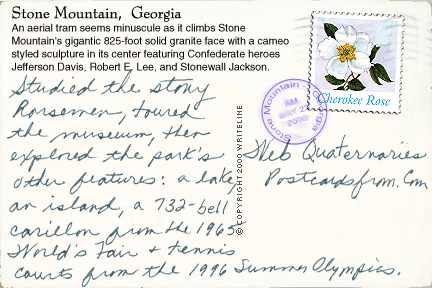 Stone Mountain, Georgia
An aerial tram seems minuscule as it climbs Stone
Mountain's gigantic 825-foot solid granite face with a cameo
styled sculpture in its center featuring Confederate heroes
Jefferson Davis, Robert E. Lee, and Stonewall Jackson.
Cherokee Rose
Stone Mountain - Georgia
AM
2000
© COPYRIGHT 2000 WRITELINE
Studied the stony
horsemen, toured
the museum, then
explored the park's
other features: a lake,
an island, a 732-bell
carillon from the 1965
World's Fair + tennis
courts from the 1996 Summer Olympics.
Web Quaternaries
Postcardsfrom.Com